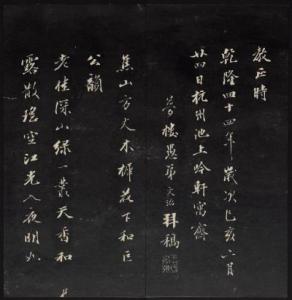 教正時
乾隆四十四年歲次己亥六月
廿四日杭州池上吟軒寓齋
夢樓愚弟文治拜稿
焦山方丈木樨花下和巨
公韻
老桂深山綠叢天香和
露散瑤空江光入夜明如